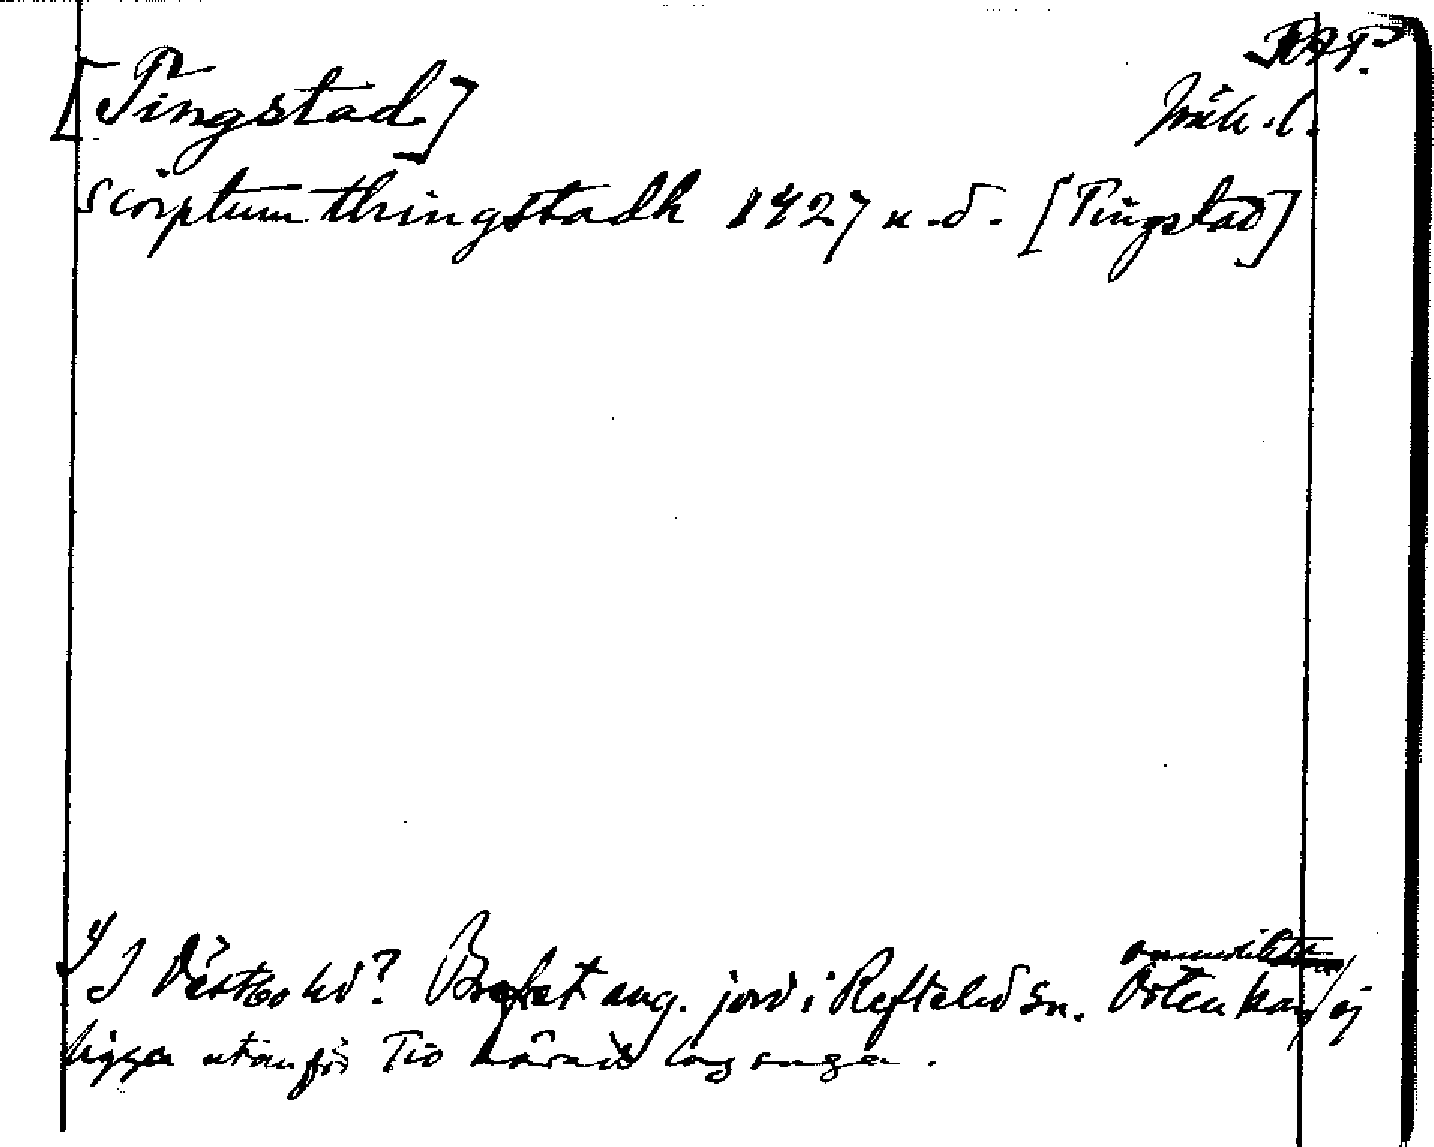 [Tingstad]
Jönk. l.
scriptum thringstadh 1427 u.d. [Tingstad]
I Västbo hd? Brefvet ang. jord i Reftele sn. Orten kan ej
ligga utanför Tio härads lagsaga.